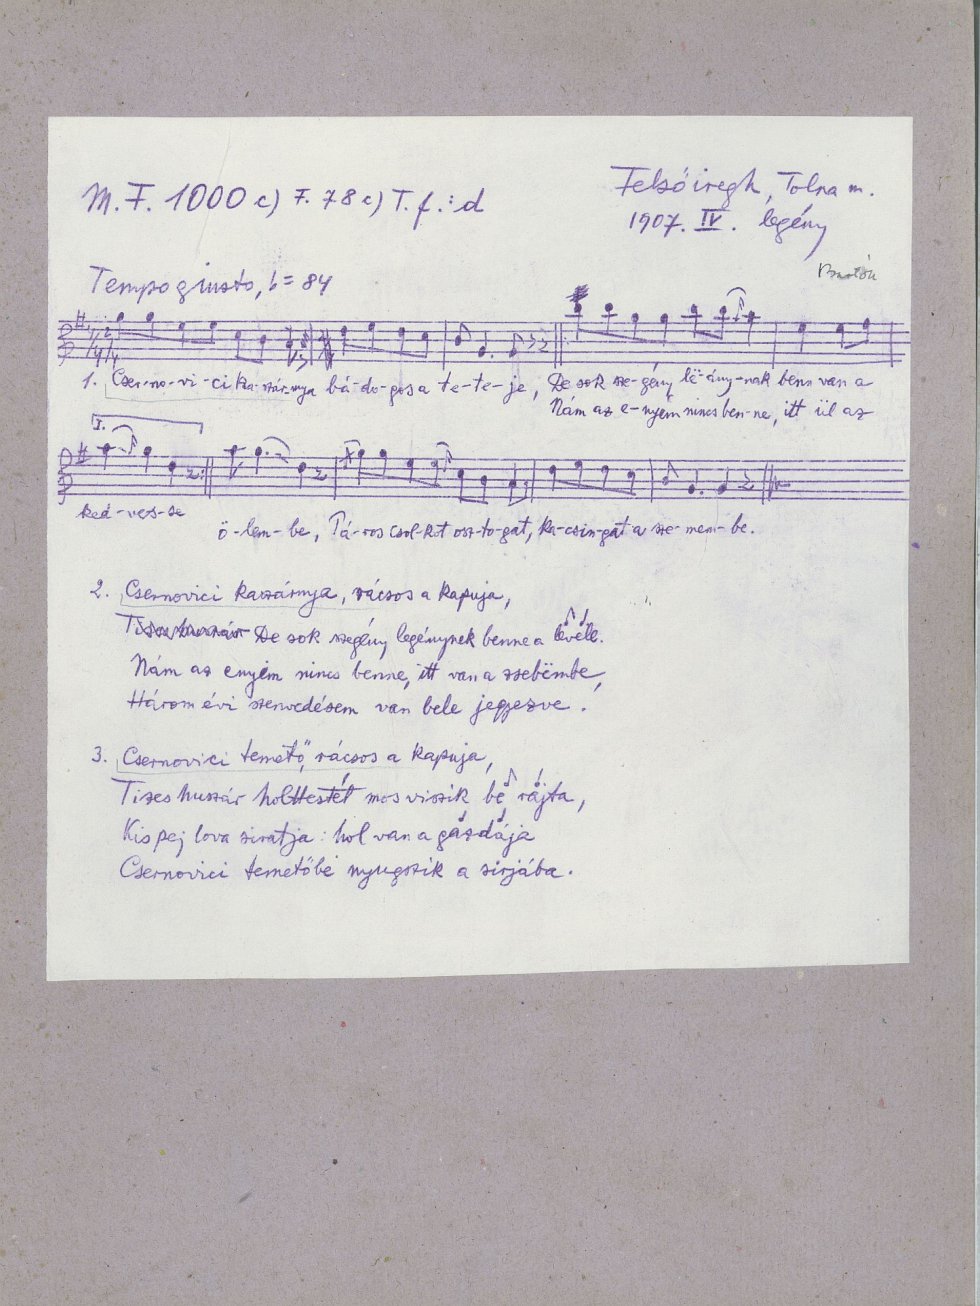 M. F. 1000 c) F. 78 c) T. f.: d
Felsőiregh, Tolna m.
1907. IV. legény
Bartók
Tempo giusto, ♪ = 84
1. Cser-no-vi-ci ka-szár-nya bá-do-gos a te-te-je, De sok sze-gény lë-ány-nak benn van a
Nám az e-nyém nincs ben-ne, itt ül az
I.
ked-ves-se
ö-lem-be, Tá-ros csol-kot osz-to-gat, ka-csin-gat a sze-mem-be.
2. Csernovici kaszárnya, rácsos a kapuja,
De sok szegény legénynek benne a levéle.
Nám az enyém nincs benne, itt van a zsebëmbe,
Három évi szenvedésem van bele jegyezve.
3. Csernovici temető, rácsos a kapuja,
Tizes huszár holttestét mos viszik be rajta,
Kis pej lova siratja: hol van a gazdája
Csernovici temetőbe nyugszik a sirjába.